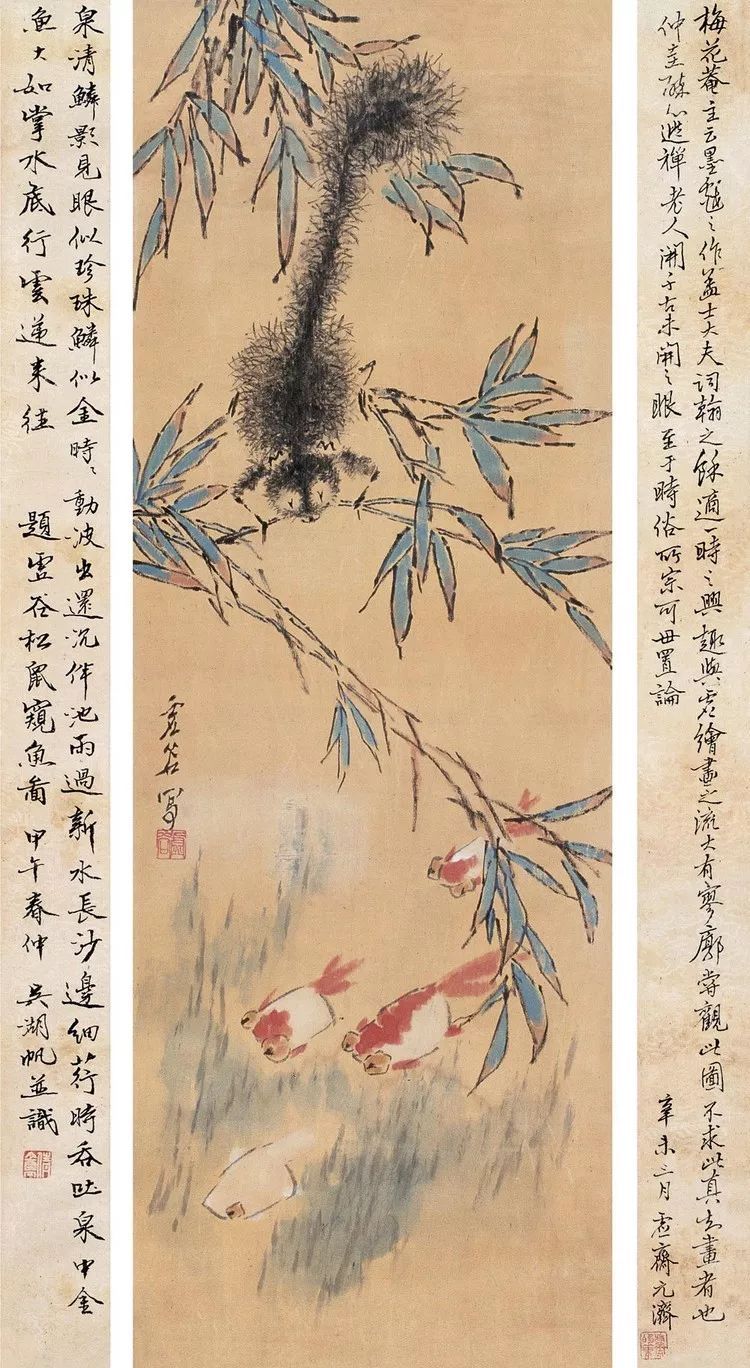 梅花菴主云墨戲之作蓋士大夫詞翰之餘適一時之興趣與繪畫之流大有寥廓嘗觀此圖不求真畫者也
仲圭逃禪老人開千古未開之眼至于時俗所宗可毋置論
辛未三月 虛齋元濟
虛谷寫
泉清鱗影見眼似珍珠鱗似金時〻動波出還沉伴池雨過新水長沙邊細荇時吞吐泉中金
魚大如掌水底行雲遞來往 題虛谷松鼠窺魚圖 甲午春仲 吳湖帆並識